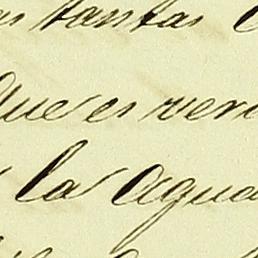 tantas
que es ver
la agua